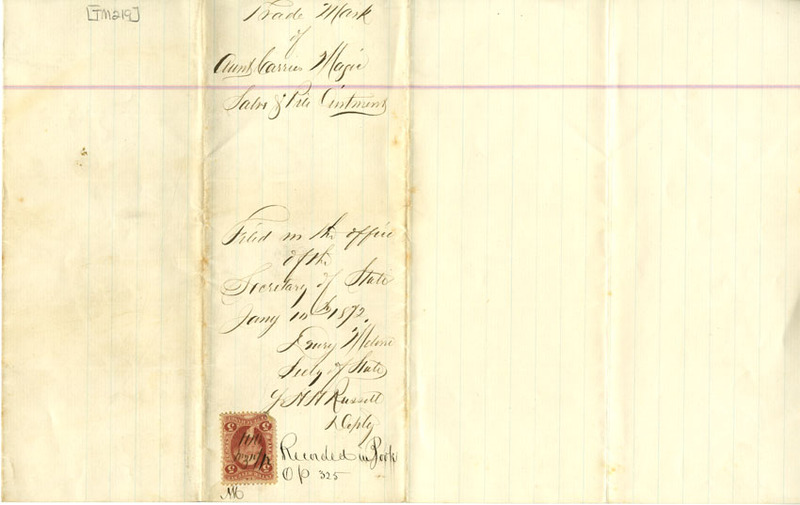 [TM219]
Trade Mark
of
Aunt Carries Magic
Salve & Pile Ointment
Filed in the office
of the
Secretary of State
Jany 10th 1872.
Drury Melone
Secty of State
H H Russell
Depty
Recorded in Book
O p 325